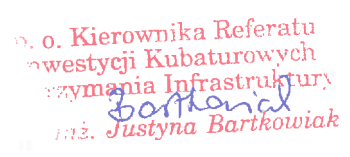 p. o. Kierownika Referatu
Inwestycji Kubaturowych
Utrzymania Infrastruktury
Bartkowiak
inż. Justyna Bartkowiak